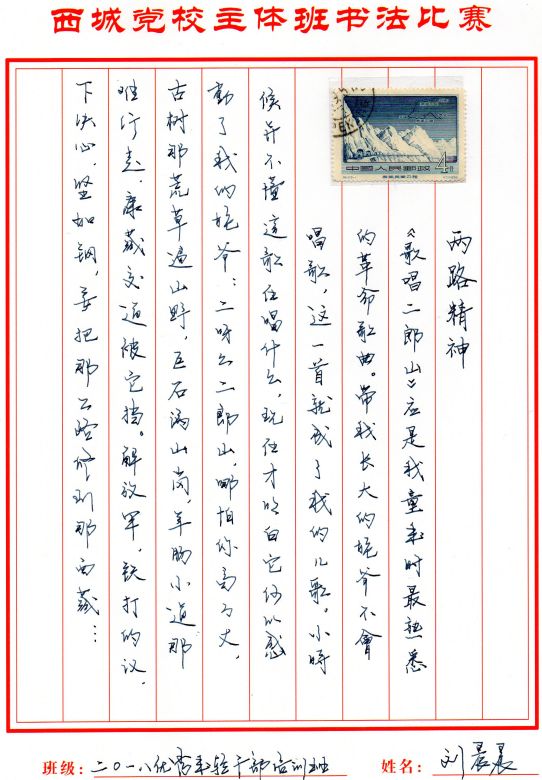 西城党校主体班书法比赛
中國人民郵政
4分
两路精神
《歌唱二郎山》应是我童年时最熟悉
的革命歌曲。带我长大的姥爷不會
唱歌，这一首就成了我的儿歌。小時
候并不懂這歌在唱什么，现在才明白它何以感
動了我的姥爷：二呀么二郎山，哪怕你高万丈，
古树那荒草遍山野，巨石满山岗，羊肠小道那
难行走，康藏交通被它挡。解放军，铁打的汉，
下决心，坚如钢，要把那公路修到那西藏…
班级：二〇一八优秀年轻干部培训班 姓名：刘晨晨